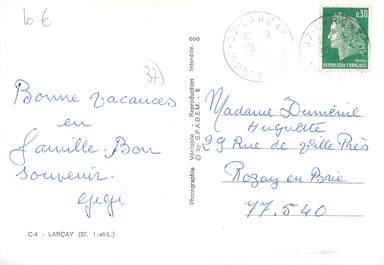 10 €
37)
Bonne vacances
en
famille. Bon
souvenir.
Gigi
C-4 - LARÇAY (37. I.-et-L.)
Photographie Véritable - Reproduction Interdite.
© by S.P.A.D.E.M. - 6
37 LARÇAY
0,30
RÉPUBLIQUE FRANÇAISE
Madame Duménil
Huguette
29 Rue de ville Près
Rozay en Brie
77.540